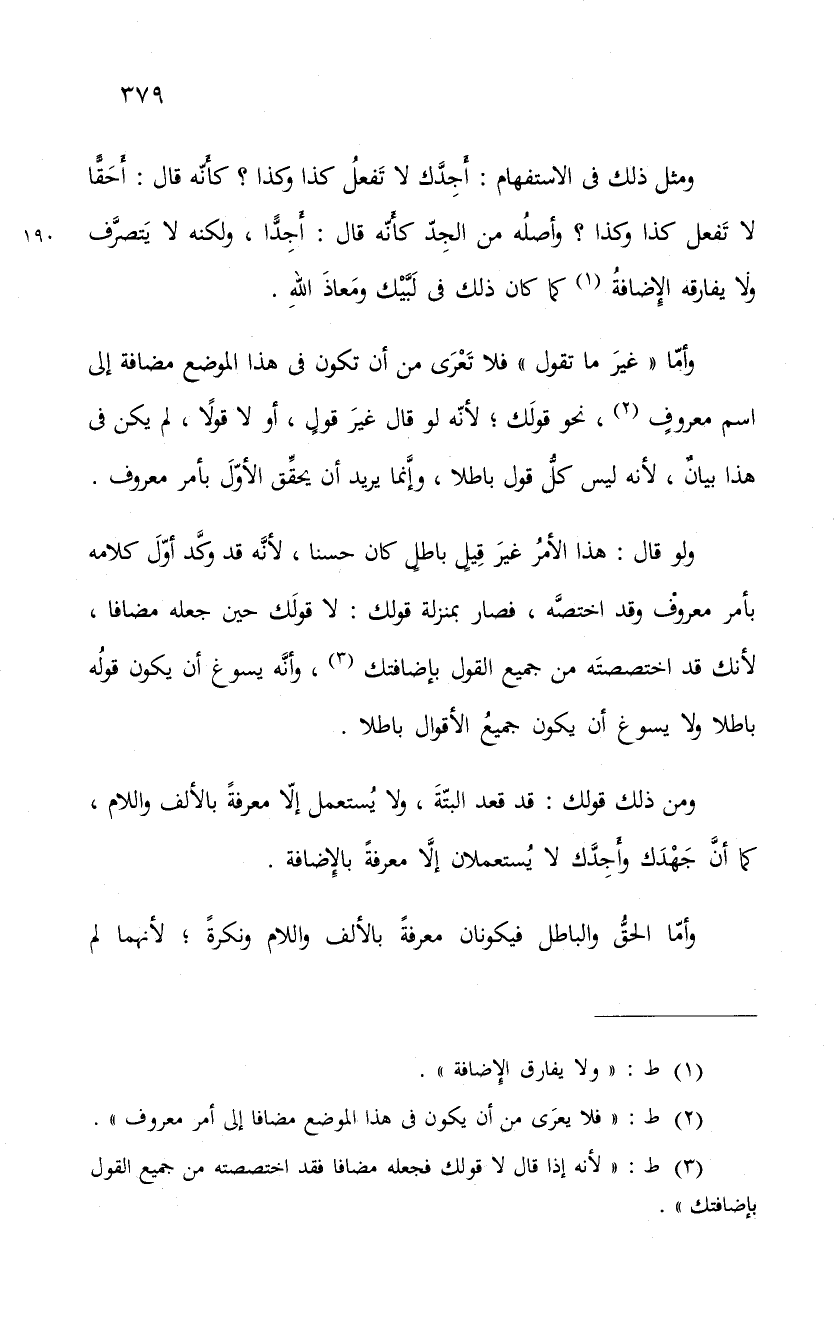 ٣٧٩
ومثل ذلك فى الاستفهام : أَجِدَّك لا تَفعلُ كذا وكذا ؟ كأَنّه قال : أَحَقًّا
لا تَفعل كذا وكذا ؟ وأصلُه من الجِدّ كأَنّه قال : أَجِدًّا ، ولكنه لا يَتصرَّف ١٩٠
ولَا يفارقه الإِضافةُ (١) كما كان ذلك فى لَبَّيْك ومَعاذَ اللهِ .
وأمّا « غيرَ ما تقول » فلا تَعْرَى من أن تكون فى هذا الموضع مضافة إلى
اسم معروفٍ (٢) ، نحو قولَك ؛ لأنّه لو قال غيرَ قولٍ ، أو لا قولًا ، لم يكن فى
هذا بيانٌ ، لأنه ليس كلُّ قول باطلا ، وإَّنما يريد أن يحقِّق الأوّلَ بأمر معروف .
ولو قال : هذا الأمرُ غيرَ قِيلٍ باطلٍ كان حسنا ، لأنَّه قد وكَّد أوّلَ كلامه
بأمر معروفْ وقد اختصَّه ، فصار بمنزلة قولك : لا قولَك حين جعله مضافا ،
لأنك قد اختصصتَه من جميع القول بإضافتك (٣) ، وأنَّه يسوغ أن يكون قولُه
باطلا ولا يسوغ أن يكون جميعُ الأقوال باطلا .
ومن ذلك قولك : قد قعد البتّةَ ، ولا يُستعمل إلّا معرفةً بالألف واللام ،
كما أنَّ جَهْدَك وأَجِدَّك لا يُستعملان إلَّا معرفةً بالإِضافة .
وأمّا الحقُّ والباطل فيكونان معرفةً بالألف واللام ونكرةً ؛ لأنهما لم
(١) ط : « ولا يفارق الإِضافة » .
(٢) ط : « فلا يعرَى من أن يكون فى هذا الموضع مضافا إلى أمر معروف » .
(٣) ط : « لأنه إذا قال لا قولك فجعله مضافا فقد اختصصته من جميع القول
بإضافتك » .